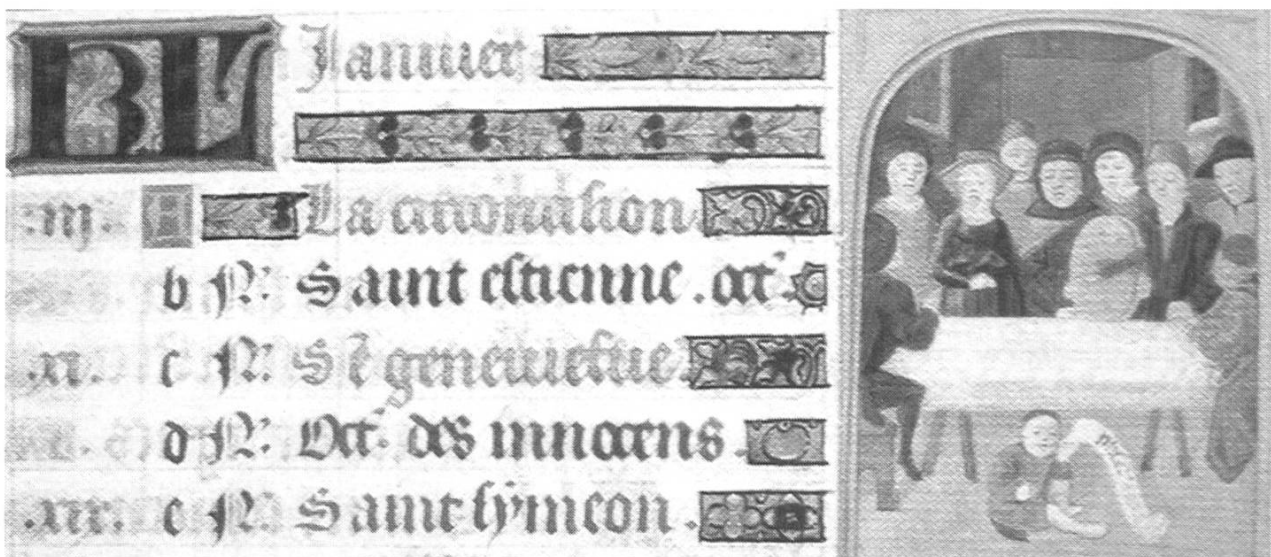 KL Januier
.iij. A La circoncision
b N. Saint estienne . oct'
.xi. c N. Sᵉ geneuiefue
d N. Oct' des innocens
.xix. e N. Saint symeon .